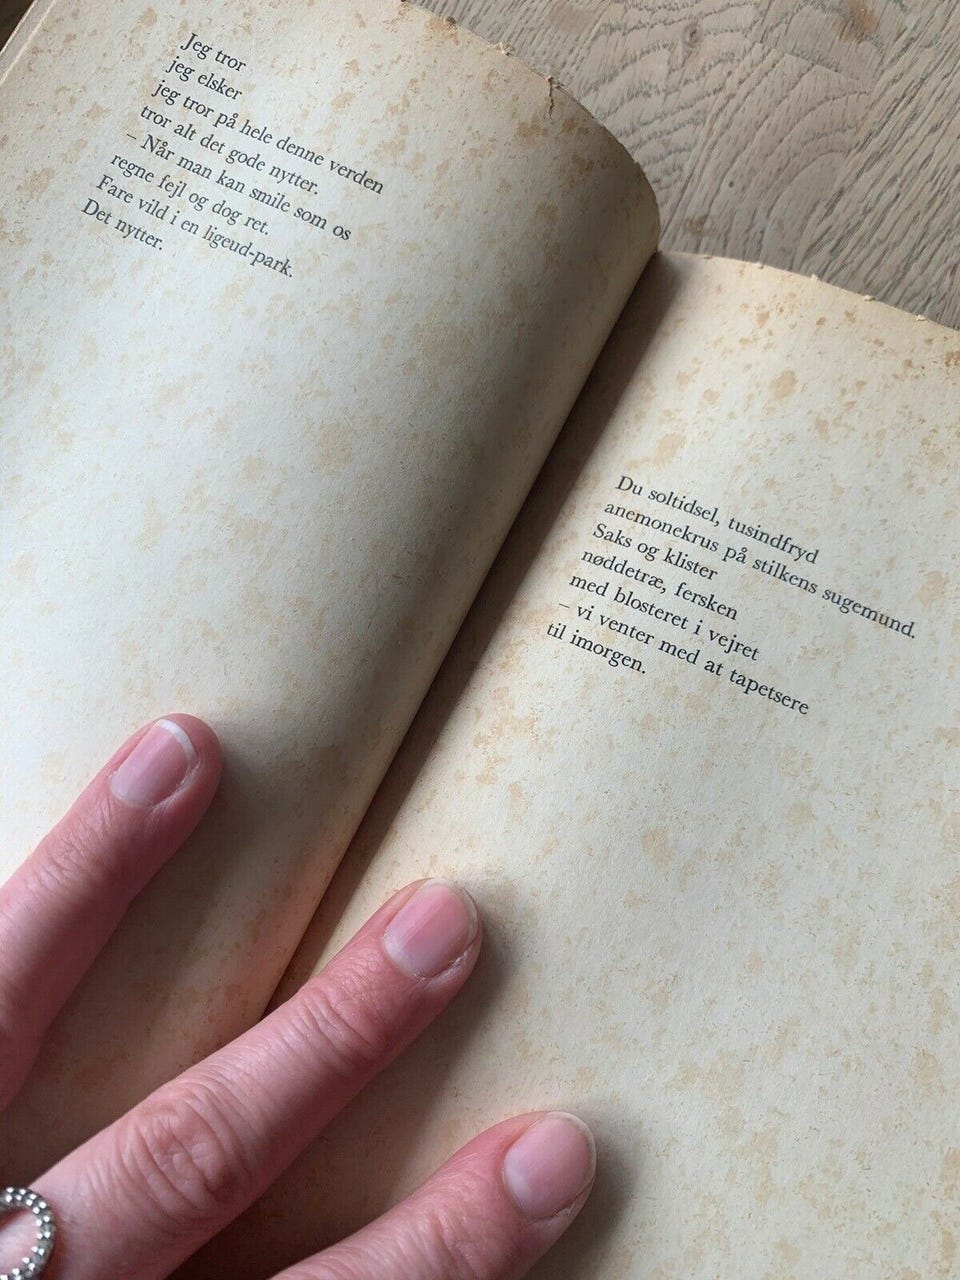 Jeg tror
jeg elsker
jeg tror på hele denne verden
tror alt det gode nytter.
– Når man kan smile som os
regne fejl og dog ret.
Fare vild i en ligeud-park.
Det nytter.
Du soltidsel, tusindfryd
anemonekrus på stilkens sugemund.
Saks og klister
nøddetræ, fersken
med blosteret i vejret
– vi venter med at tapetsere
til imorgen.